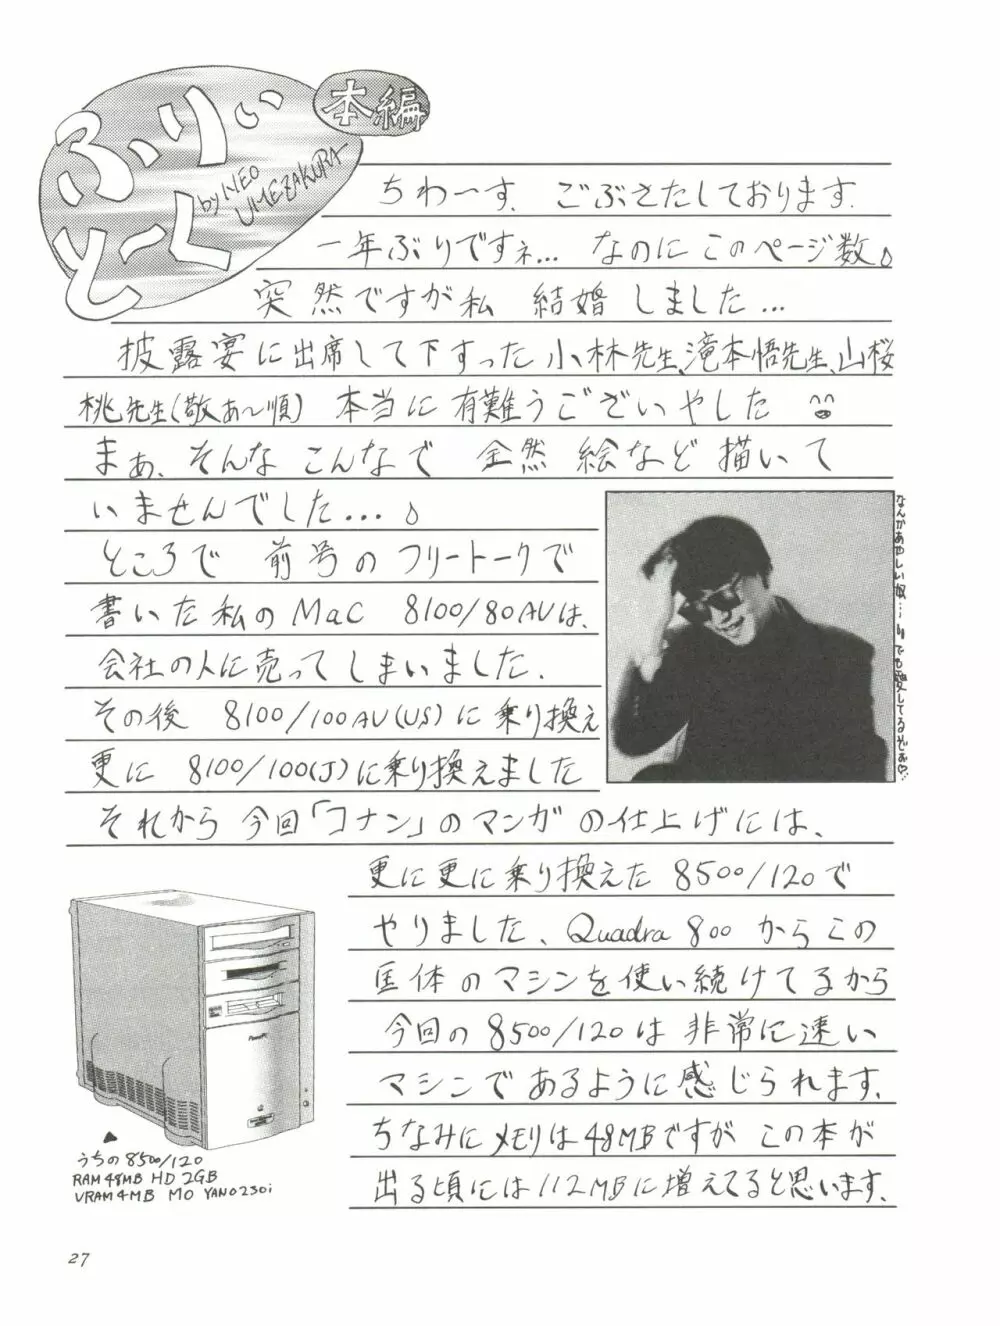 ふりぃとーく
本編
by NEO UMEZAKURA
ちわーす. ごぶさたしております.
一年ぶりですネ... なのにこのページ数♪
突然ですが私 結婚しました...
披露宴に出席して下すった小林先生、滝本悟先生、山桜
桃先生(敬あ〜順) 本当に有難うございやした
まぁ、そんなこんなで 全然絵など描いて
いませんでした...♪
ところで 前号のフリートークで
書いた私のMac 8100/80AVは、
会社の人に売ってしまいました.
その後 8100/100AV(US)に乗り換え
更に 8100/100(J)に乗り換えました
なんかあやしい奴... でも愛してるぞぉ♡
それから今回「コナン」のマンガの仕上げには、
更に更に乗り換えた8500/120で
やりました、Quadra 800からこの
匡体のマシンを使い続けてるから
今回の8500/120は非常に速い
マシンであるように感じられます.
ちなみにメモリは48MBですが この本が
出る頃には112MBに増えてると思います.
PowerPC
▲
うちの8500/120
RAM 48MB HD 2GB
VRAM 4MB MO YANO230i
27